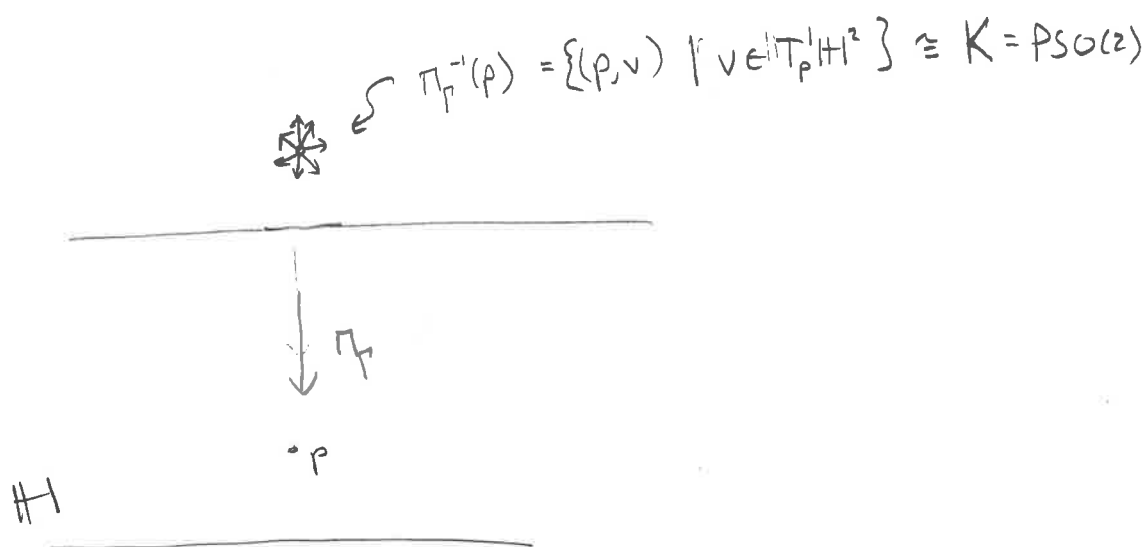 π_Γ^{-1}(p) = {(p,v) | v ∈ T_p^1 ℍ^2} ≅ K = PSO(2)
π_Γ
p
ℍ